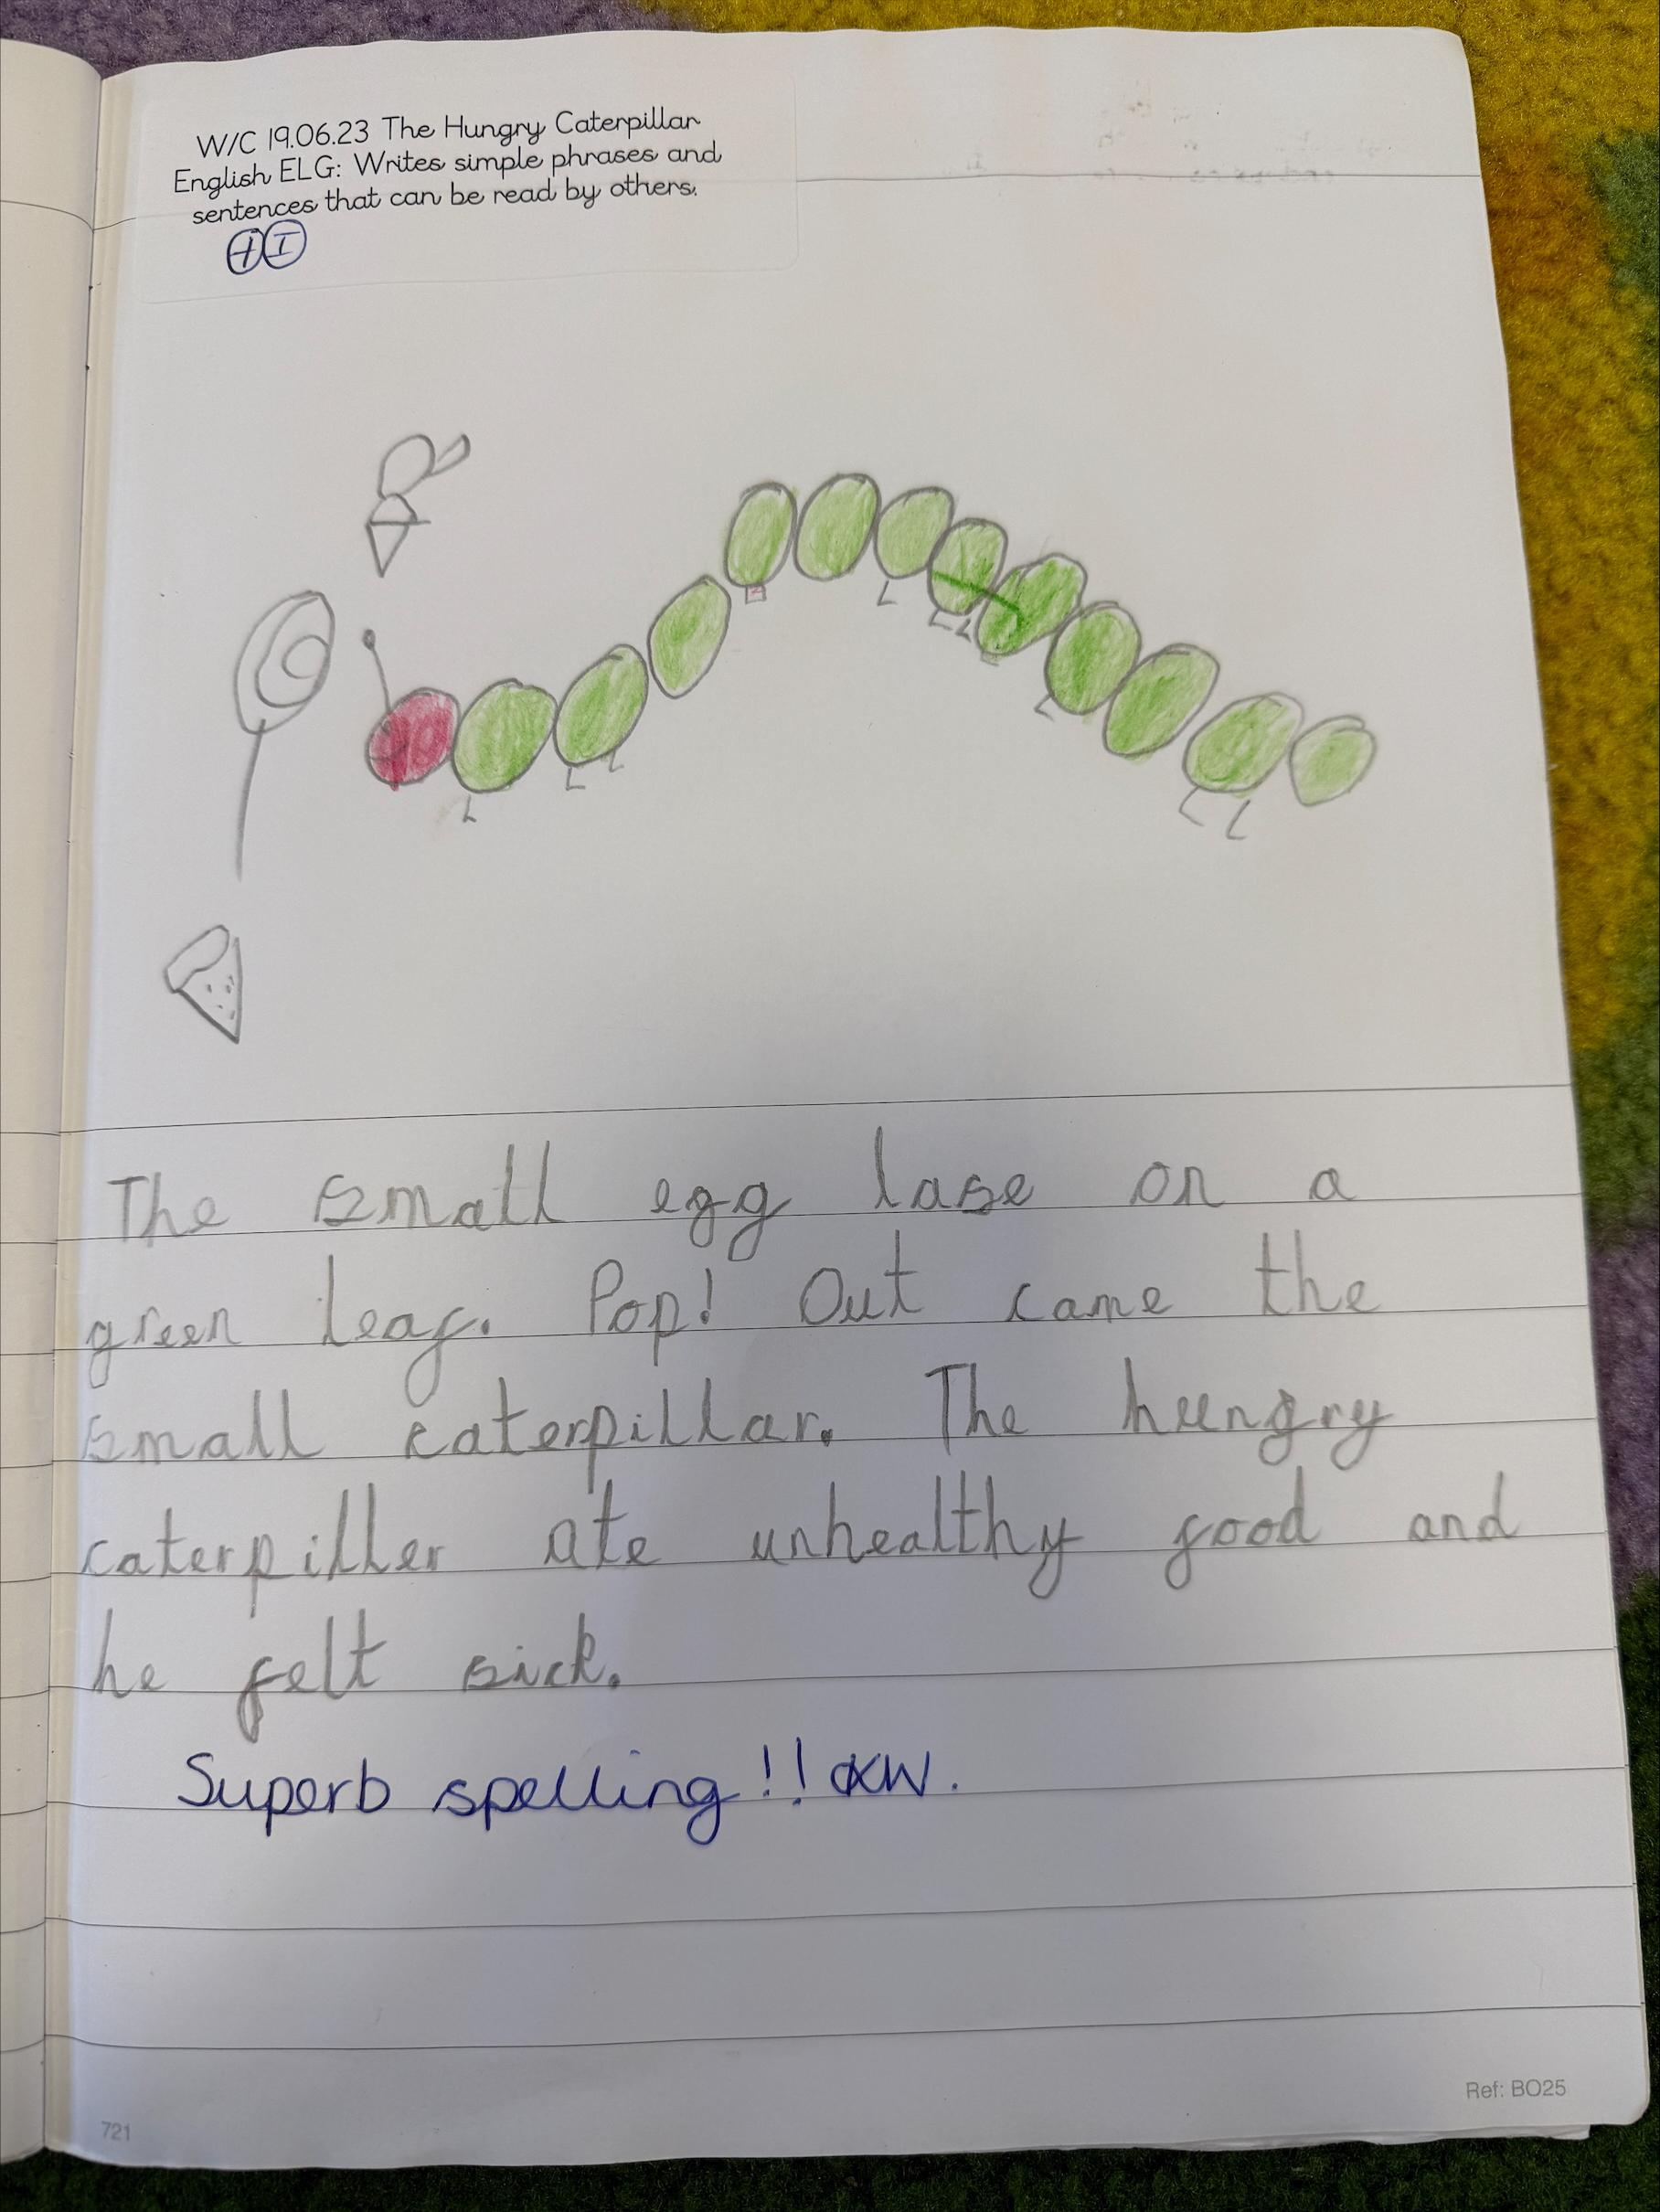 W/C 19.06.23 The Hungry Caterpillar
English ELG: Writes simple phrases and
sentences that can be read by others.
The small egg lase on a
green leaf. Pop! Out came the
small caterpillar. The hungry
caterpiller ate unhealthy food and
he felt sick.
Superb spelling!! KW.
721
Ref: BO25